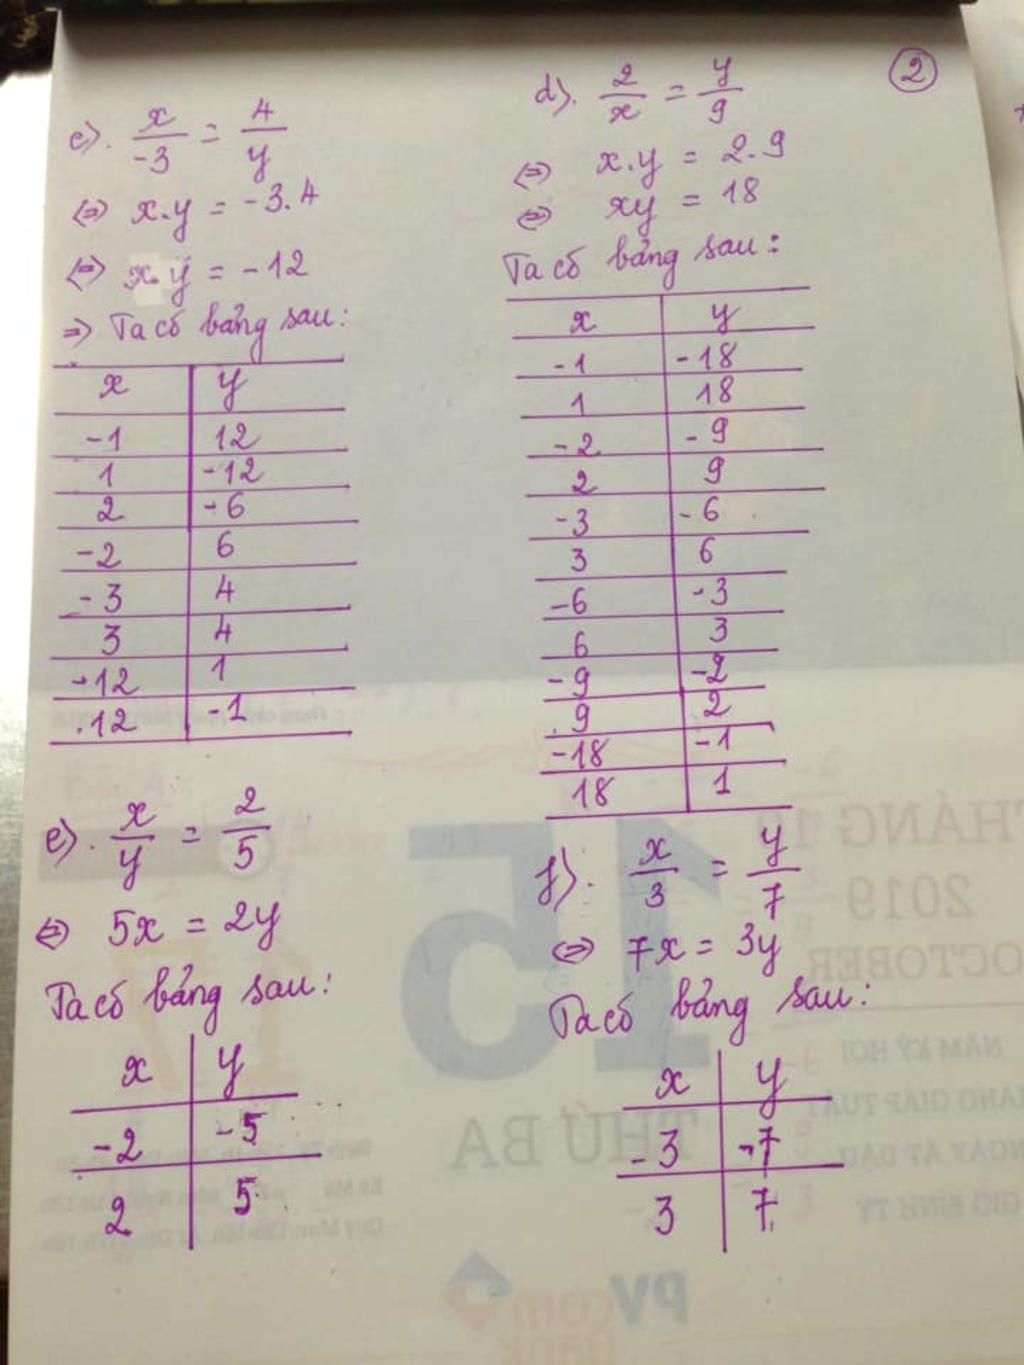 c). x/-3 = 4/y
⇔ x.y = -3.4
⇔ x.y = -12
⇒ Ta có bảng sau:
x | y
-1 | 12
1 | -12
2 | -6
-2 | 6
-3 | 4
3 | 4
-12 | 1
12 | -1
e). x/y = 2/5
⇔ 5x = 2y
Ta có bảng sau:
x | y
-2 | -5
2 | 5
2
d). 2/x = y/9
⇔ x.y = 2.9
⇔ xy = 18
Ta có bảng sau:
x | y
-1 | -18
1 | 18
-2 | -9
2 | 9
-3 | -6
3 | 6
-6 | -3
6 | 3
-9 | -2
9 | 2
-18 | -1
18 | 1
f). x/3 = y/7
⇔ 7x = 3y
Ta có bảng sau:
x | y
-3 | -7
3 | 7
15
THÁNG 10
2019
OCTOBER
NĂM KỶ HỢI
THÁNG GIÁP TUẤT
NGÀY ẤT DẬU
GIỜ BÍNH TÝ
THỨ BA
PV
com
bank